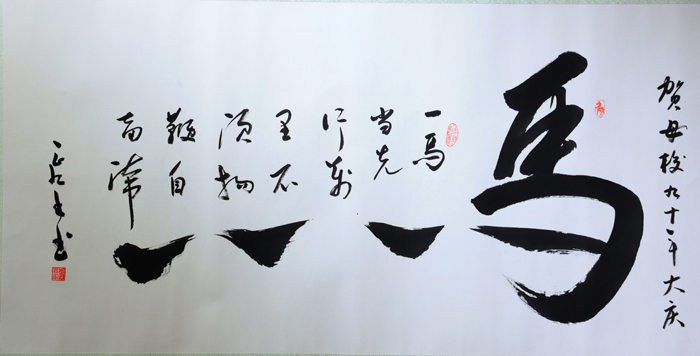 贺母校九十一年大庆
馬
一馬
当先
行萬
里不
须扬
鞭自
奋蹄